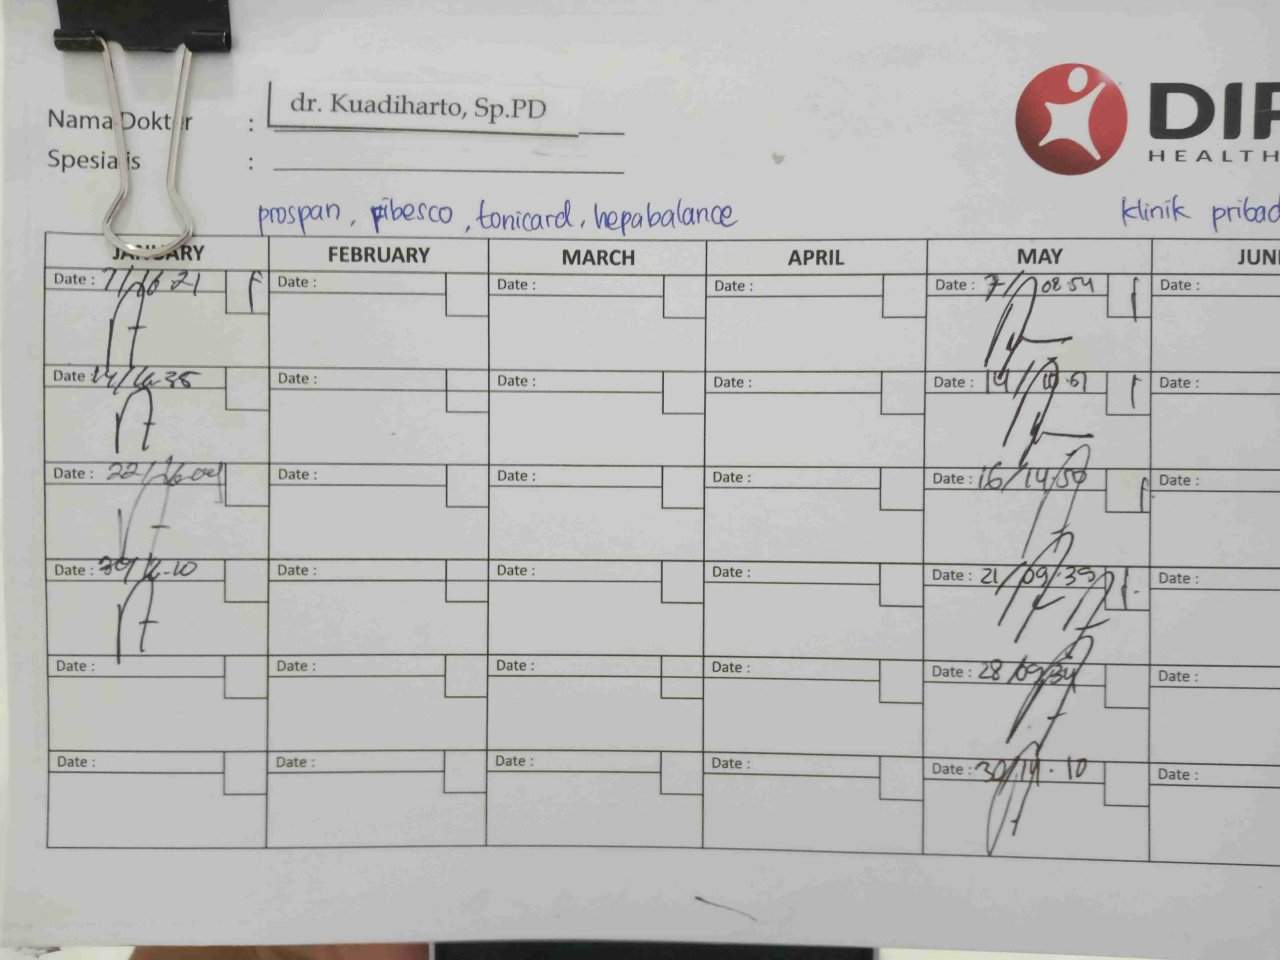 Nama Dokter : dr. Kuadiharto, Sp.PD
Spesialis :
DIP
HEALTH
prospan, ribesco, tonicard, hepabalance
klinik pribad
JANUARY FEBRUARY MARCH APRIL MAY JUN
Date : 7/16.21 Date : Date : Date : Date : 7/08.54 Date :
Date : 14/16.35 Date : Date : Date : Date : 14/10.51 Date :
Date : 22/16.04 Date : Date : Date : Date : 16/14.50 Date :
Date : 29/16.10 Date : Date : Date : Date : 21/09.39 Date :
Date : Date : Date : Date : Date : 28/09.34 Date :
Date : Date : Date : Date : Date : 30/14.10 Date :